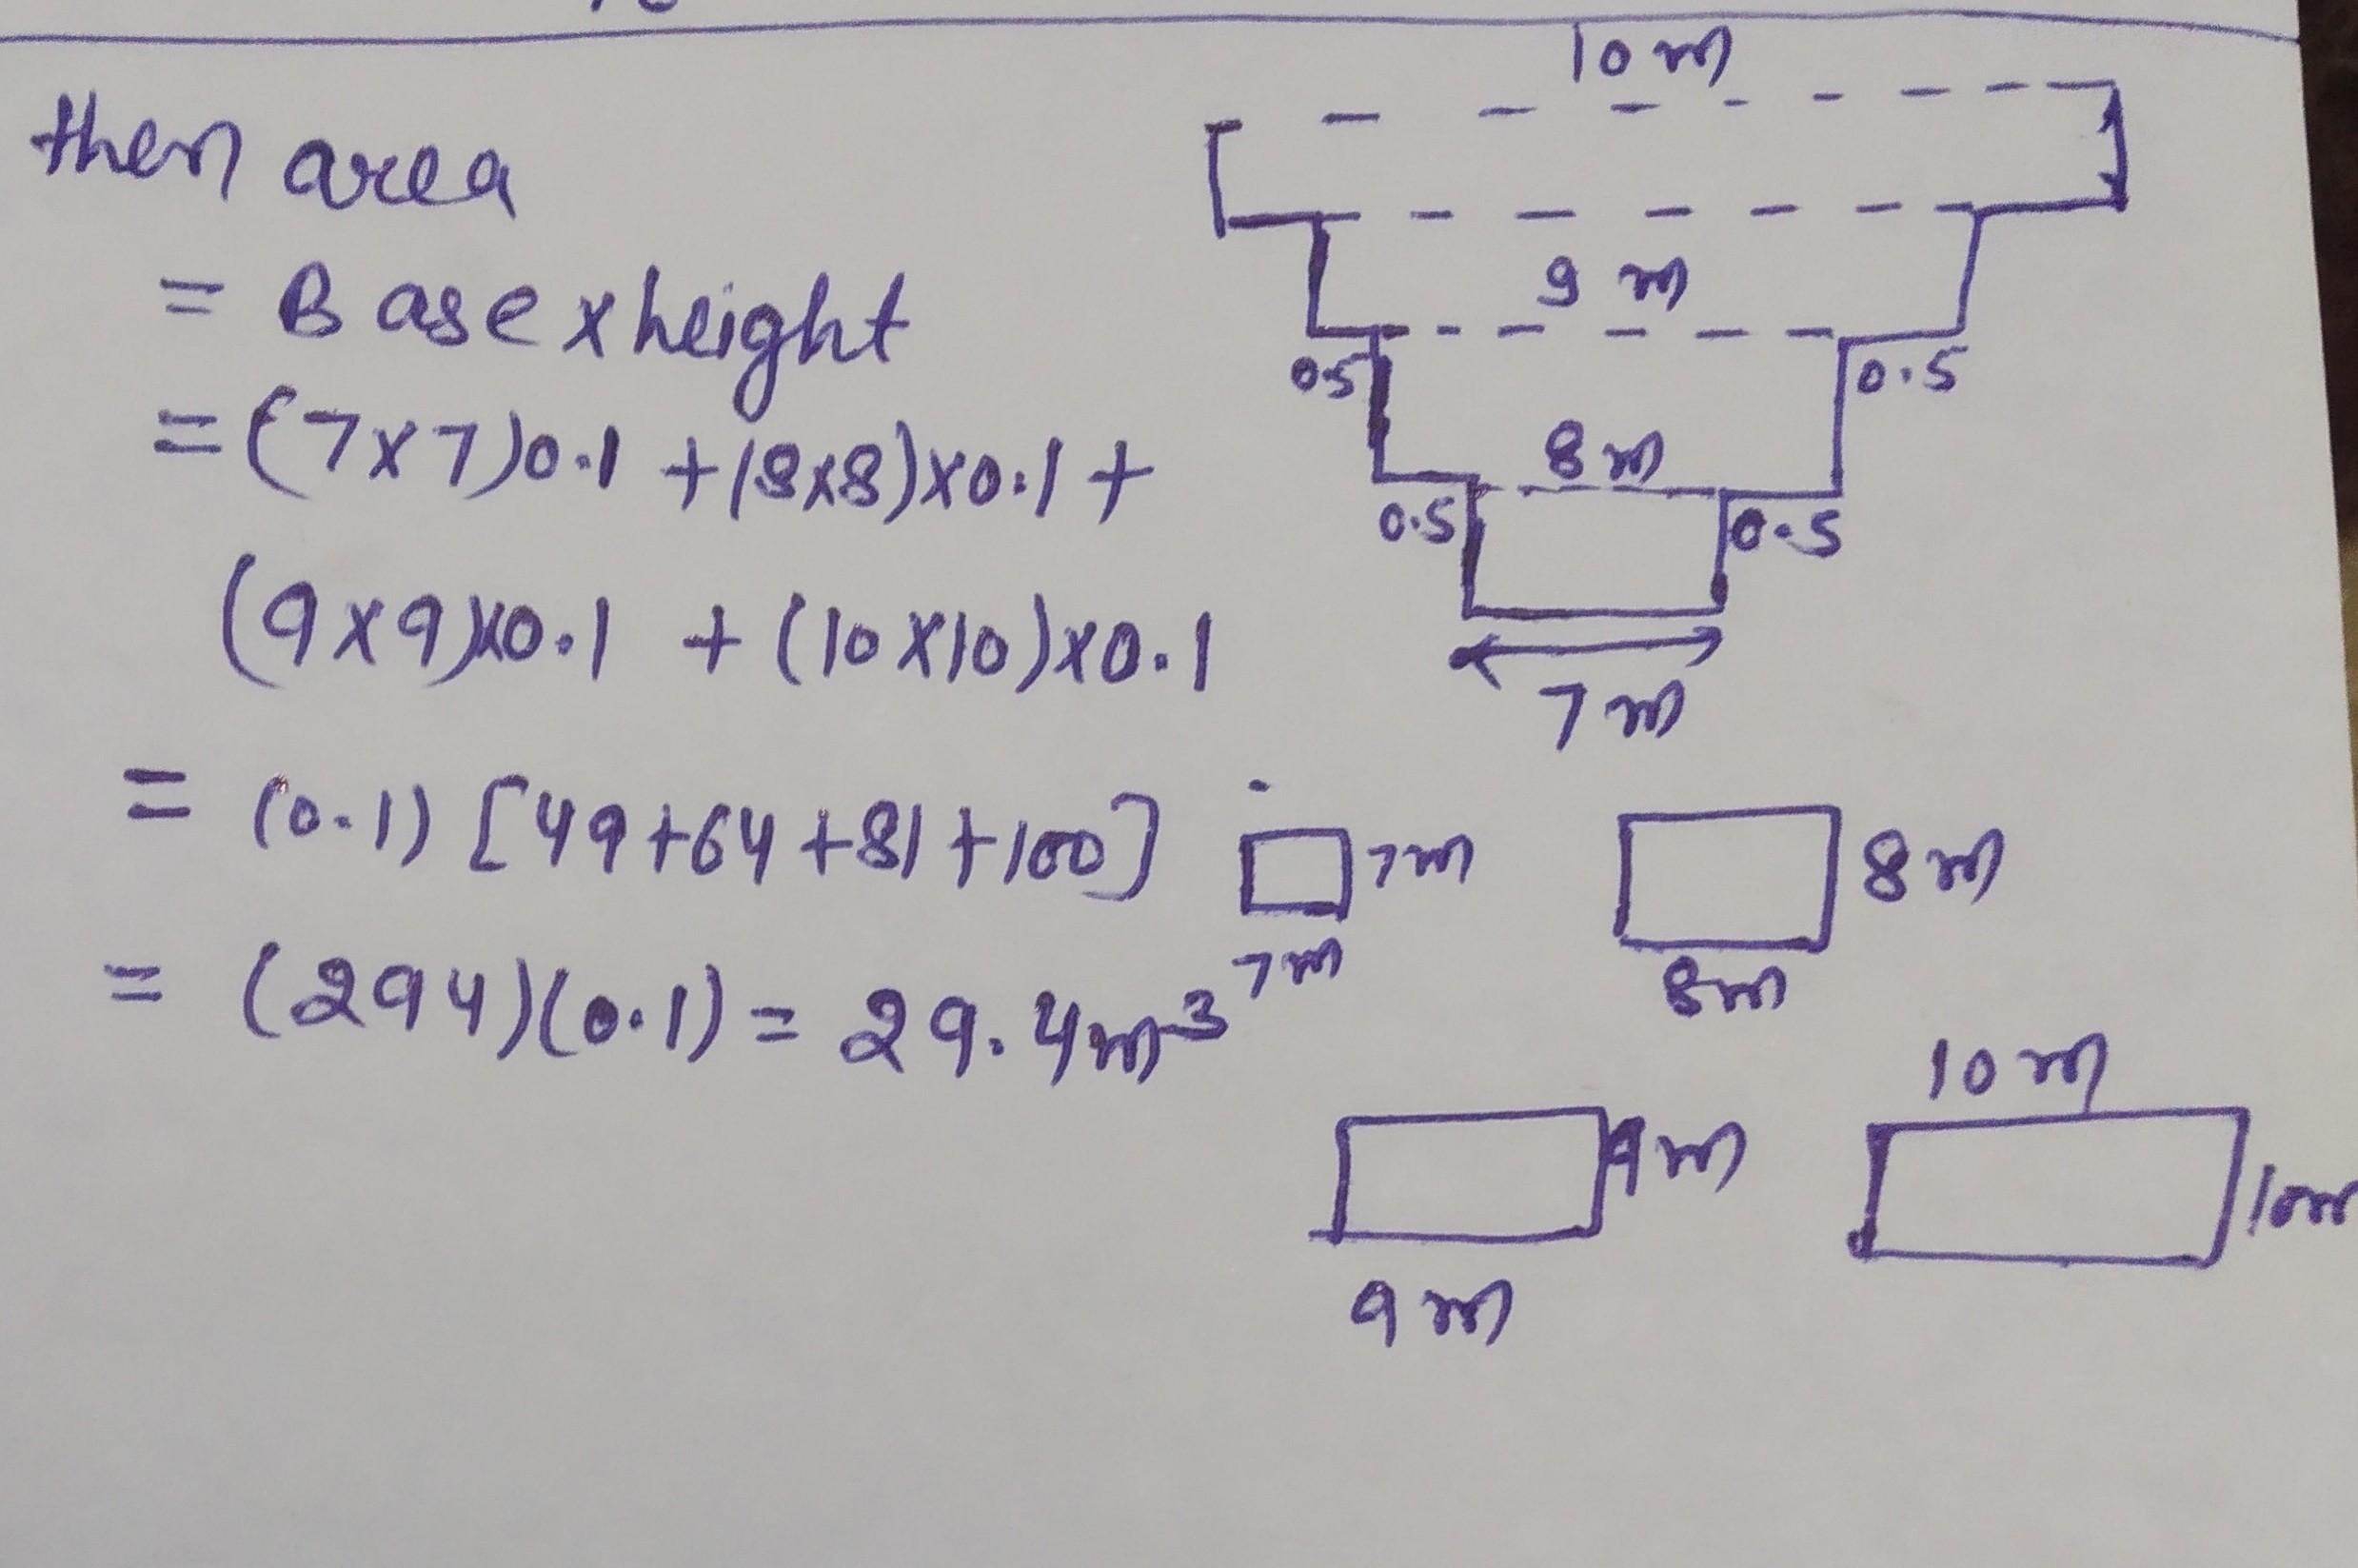 then area
= Base x height
= (7x7)0.1 + (8x8)x0.1 +
(9x9)x0.1 + (10x10)x0.1
= (0.1) [49+64+81+100]
= (294)(0.1) = 29.4m³
10 m
9 m
0.5 0.5
8 m
0.5 0.5
7 m
7m
7m
8 m
8m
9m
9 m
10 m
10m